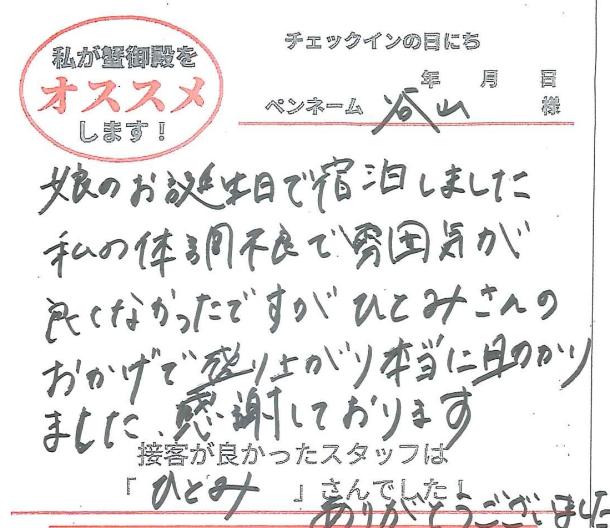 私が蟹御殿を
オススメ
します！
チェックインの日にち
年 月 日
ペンネーム 谷山 様
娘のお誕生日で宿泊しました
私の体調不良で雰囲気が
良くなかったですがひとみさんの
おかげで盛り上がり本当に助かり
ました、感謝しております
接客が良かったスタッフは
「 ひとみ 」さんでした！
ありがとうございました